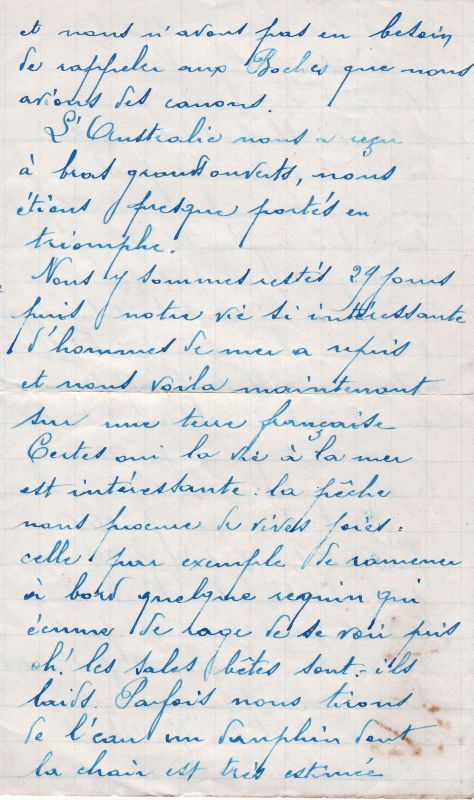 et nous n'avons pas eu besoin
de rappeler aux Boches que nous
avions des canons.
L'Australie nous a reçu
à bras grands ouverts, nous
étions presque portés en
triomphe.
Nous y sommes restés 29 jours
puis notre vie si intéressante
d'hommes de mer a repris
et nous voila maintenant
sur une terre française
Certes oui la vie à la mer
est intéressante : la pêche
nous procure de vives joies :
celle par exemple de ramener
à bord quelque requin qui
écume de rage de se voir pris
oh! les sales bêtes sont-ils
laids. Parfois nous tirons
de l'eau un dauphin dont
la chair est très estimée